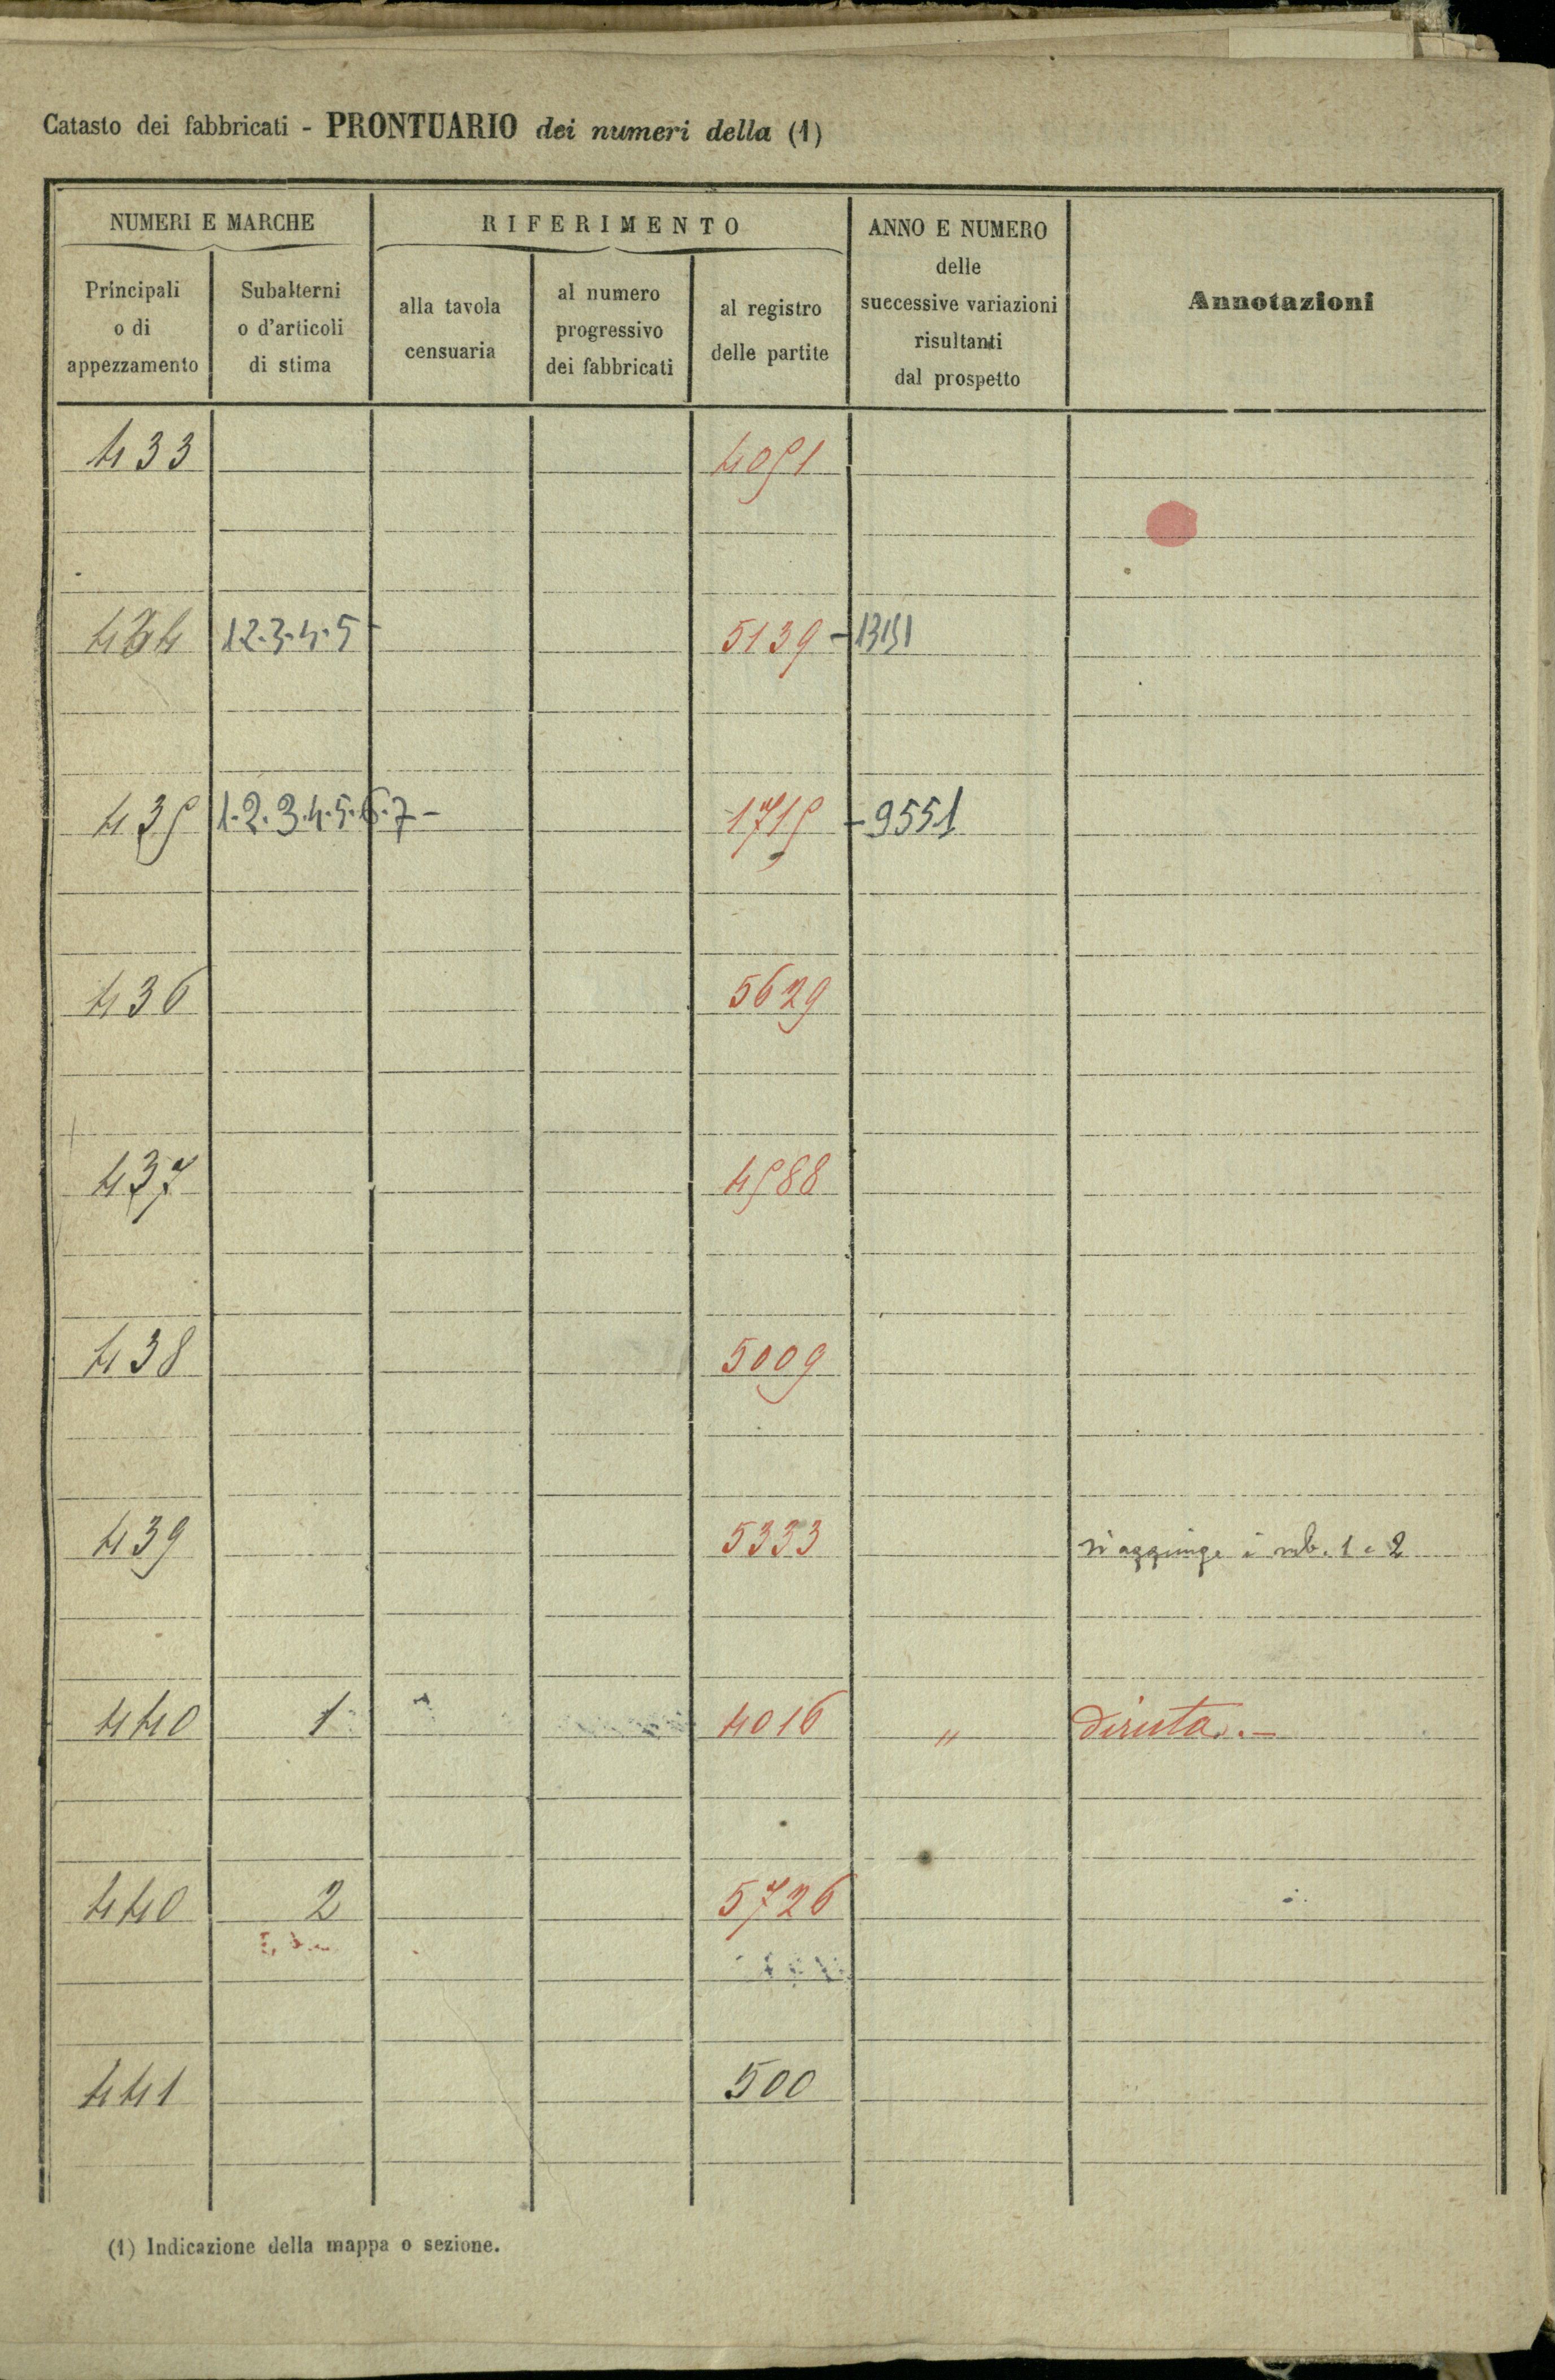 Catasto dei fabbricati - PRONTUARIO dei numeri della (1)
NUMERI E MARCHE
RIFERIMENTO
ANNO E NUMERO
delle
successive variazioni
risultanti
dal prospetto
Annotazioni
Principali
o di
appezzamento
Subalterni
o d'articoli
di stima
alla tavola
censuaria
al numero
progressivo
dei fabbricati
al registro
delle partite
433 4051
434 1.2.3.4.5 - 5139 - 13151
435 1.2.3.4.5.6.7 - 1715 - 9551
436 5629
437 4588
438 5009
439 5333 si aggiunge i sub. 1 e 2
440 1 4016 " diruta. -
440 2 5726
441 500
(1) Indicazione della mappa o sezione.